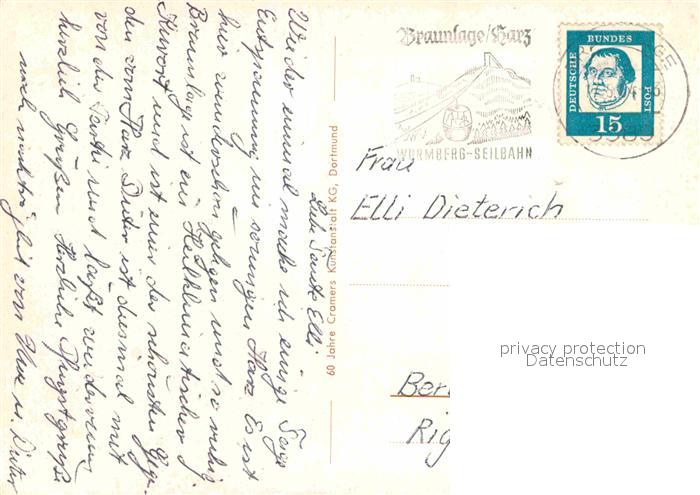 Braunlage/Harz
WURMBERG-SEILBAHN
DEUTSCHE
BUNDES
POST
15
Frau
Elli Dieterich
privacy protection
Datenschutz
Ber
Rig
60 Jahre Cramers Kunstanstalt KG, Dortmund
Liebe Tante Elli
Wieder einmal mache ich einige Tage
Entspannung im sonnigen Harz Es ist
hier wunderschön gelegen und so ruhig
Braunlage ist ein Heilklimatischer
Kurort und ist einer der schönsten Gege-
den vom Harz Dieter ist diesmal mit
von der Partie und läßt wiederum
herzlich Grüßen Herzliche Pfingstgrüße
noch nachträglich von u. Dieter